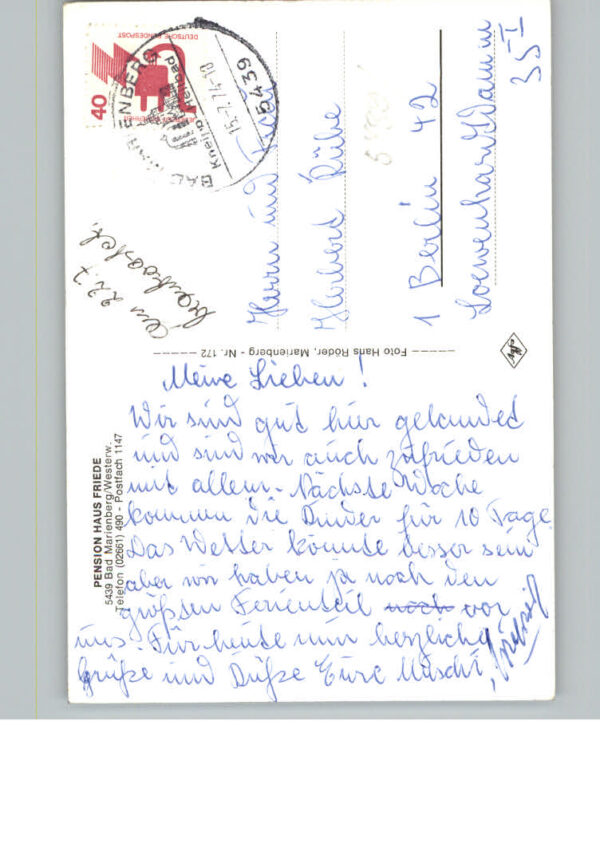 Meine Lieben!
Wir sind gut hier gelandet
und sind wir auch zufrieden
mit allem. Nächste Woche
kommen die Kinder für 10 Tage
Das Wetter könnte besser sein
aber wir haben ja noch den
größten Ferienteil noch vor
uns. Für heute nur herzliche
Grüße und Küße Eure Muschi,
PENSION HAUS FRIEDE
5439 Bad Marienberg/Westerw.
Telefon (02661) 490 - Postfach 1147
Foto Hans Röder, Marienberg - Nr. 172
Agfa
22.7
beantwortet.
DEUTSCHE BUNDESPOST
40
BAD MARIENBERG
Kneippheilbad
15.7.74-18
5439
Herrn und Frau
Herbert Kübe
1 Berlin 42
Loewenhardtdamm
35 I